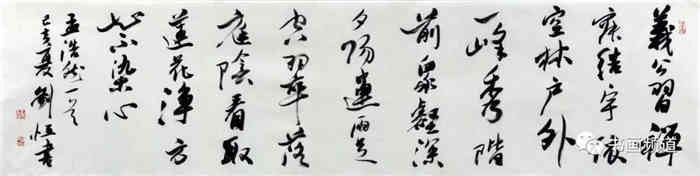 義公習禪
寂結宇依
空林戶外
一峰秀階
前眾壑深
夕陽連雨足
空翠落
庭陰看取
蓮花淨方
知不染心
孟浩然一首
己亥夏劉恒書
书画频道